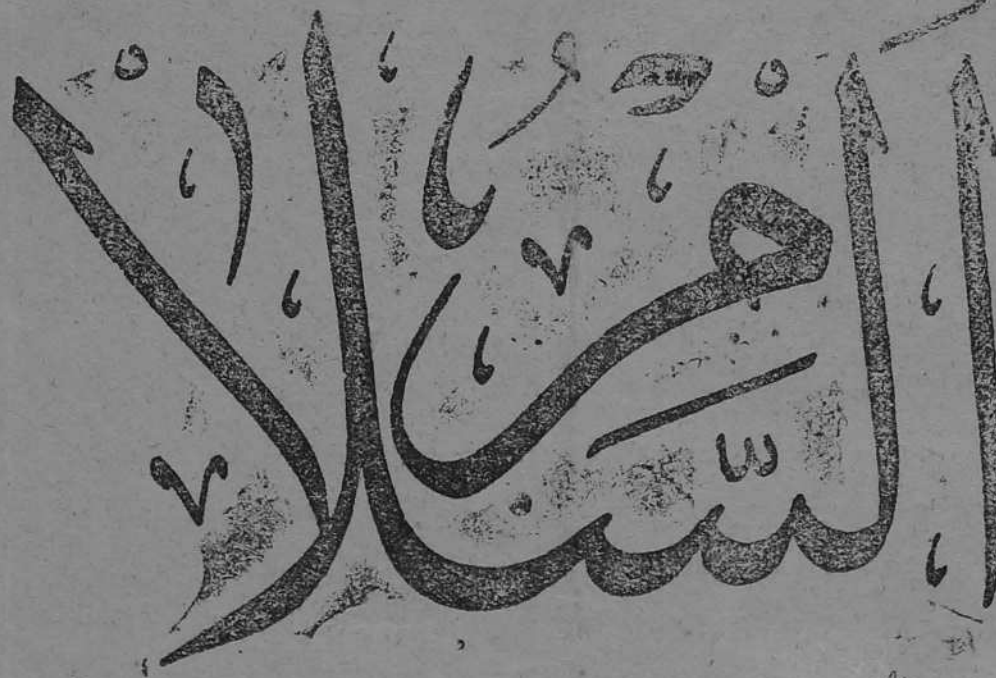 السَّلام